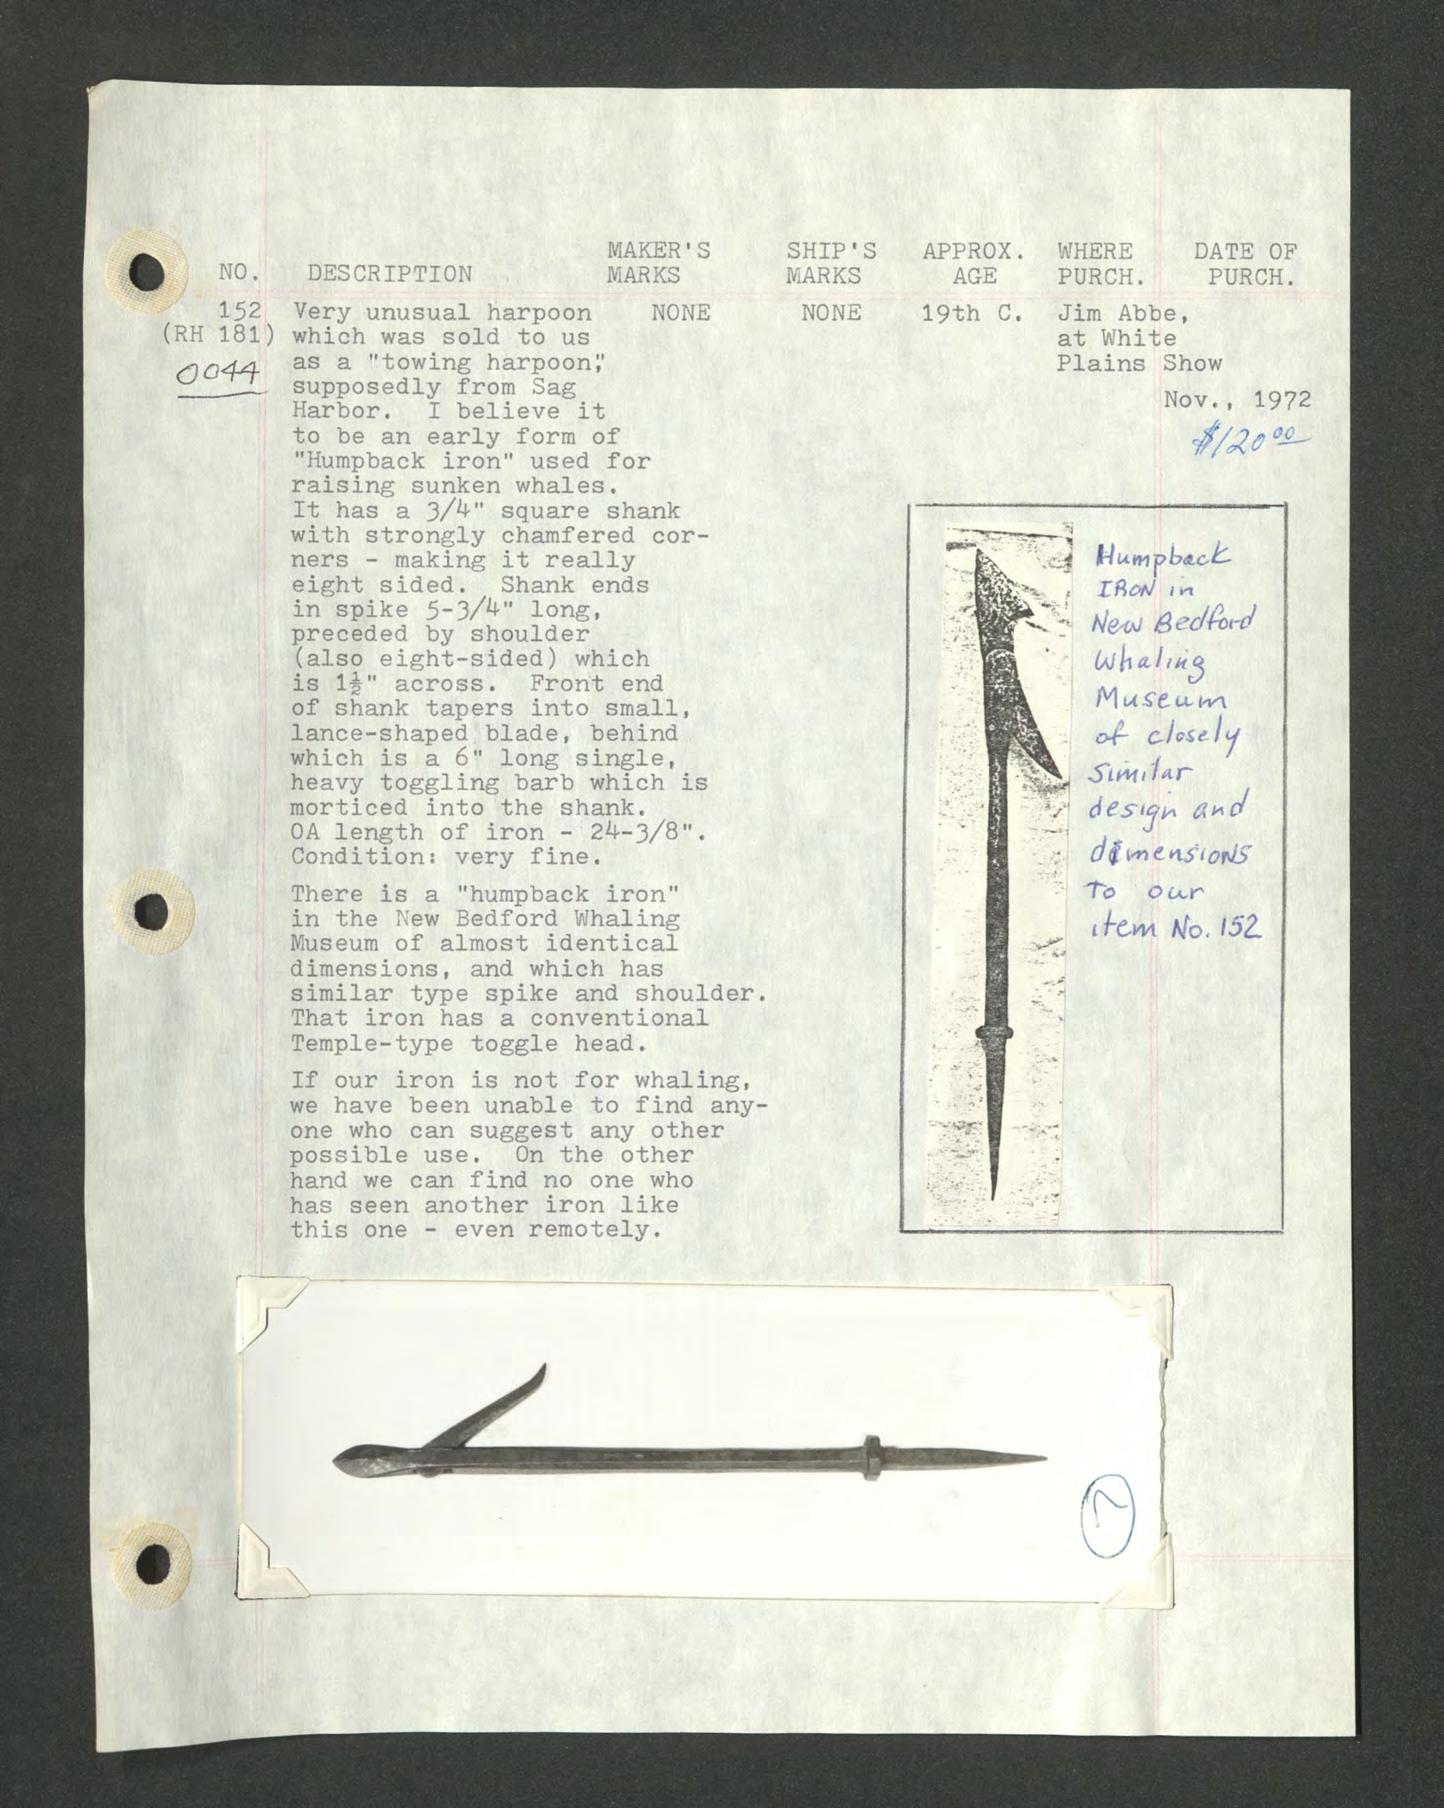 NO. DESCRIPTION MAKER'S MARKS SHIP'S MARKS APPROX. AGE WHERE PURCH. DATE OF PURCH.
152
(RH 181)
0044
Very unusual harpoon
which was sold to us
as a "towing harpoon",
supposedly from Sag
Harbor. I believe it
to be an early form of
"Humpback iron" used for
raising sunken whales.
It has a 3/4" square shank
with strongly chamfered cor-
ners - making it really
eight sided. Shank ends
in spike 5-3/4" long,
preceded by shoulder
(also eight-sided) which
is 1½" across. Front end
of shank tapers into small,
lance-shaped blade, behind
which is a 6" long single,
heavy toggling barb which is
morticed into the shank.
OA length of iron - 24-3/8".
Condition: very fine.
There is a "humpback iron"
in the New Bedford Whaling
Museum of almost identical
dimensions, and which has
similar type spike and shoulder.
That iron has a conventional
Temple-type toggle head.
If our iron is not for whaling,
we have been unable to find any-
one who can suggest any other
possible use. On the other
hand we can find no one who
has seen another iron like
this one - even remotely.
NONE
NONE
19th C.
Jim Abbe,
at White
Plains Show
Nov., 1972
$120.00
Humpback
IRON in
New Bedford
Whaling
Museum
of closely
similar
design and
dimensions
to our
item No. 152
7